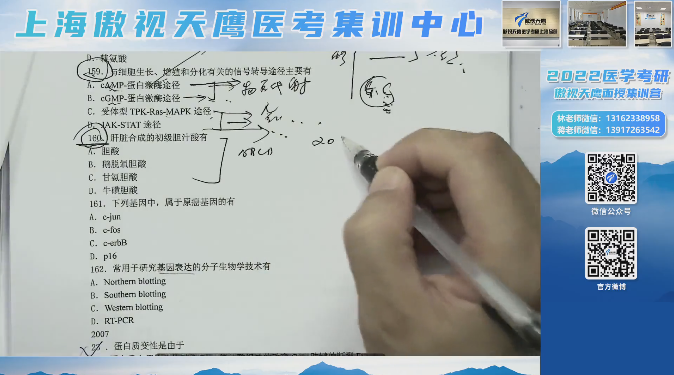 上海傲视天鹰医考集训中心
D．羧氨酸
159．与细胞生长、增殖和分化有关的信号转导途径主要有
A．cAMP-蛋白激酶途径
B．cGMP-蛋白激酶途径
C．受体型 TPK-Ras-MAPK 途径
D．JAK-STAT 途径
160．肝脏合成的初级胆汁酸有
A．胆酸
B．鹅脱氧胆酸
C．甘氨胆酸
D．牛磺胆酸
161．下列基因中，属于原癌基因的有
A．c-jun
B．c-fos
C．c-erbB
D．p16
162．常用于研究基因表达的分子生物学技术有
A．Northern blotting
B．Southern blotting
C．Western blotting
D．RT-PCR
2007
25．蛋白质变性是由于
ABCD
20
2022医学考研
傲视天鹰面授集训营
林老师微信：13162338958
蒋老师微信：13917263542
微信公众号
官方微博